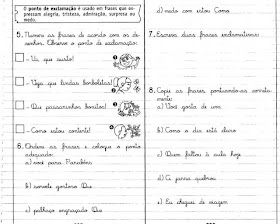 O ponto de exclamação é usado em frases que ex-
pressam alegria, tristeza, admiração, surpresa ou
medo.
5. Numere as frases de acordo com os de-
senhos. Observe o ponto de exclamação:
- Ui, que susto!
- Veja que lindas borboletas!
- Que passarinhos bonitos!
- Como estou contente!
6. Ordene as frases e coloque o ponto
adequado:
a) você para Parabéns
b) sorvete gostoso Que
c) palhaço engraçado Que
d) medo com estou Como
7. Escreva duas frases exclamativas:
8. Copie as frases, pontuando-as correta-
mente:
a) Você gosta de uva
b) Como o dia está claro
c) Quem faltou à aula hoje
d) A jarra quebrou
e) Eu cheguei de viagem